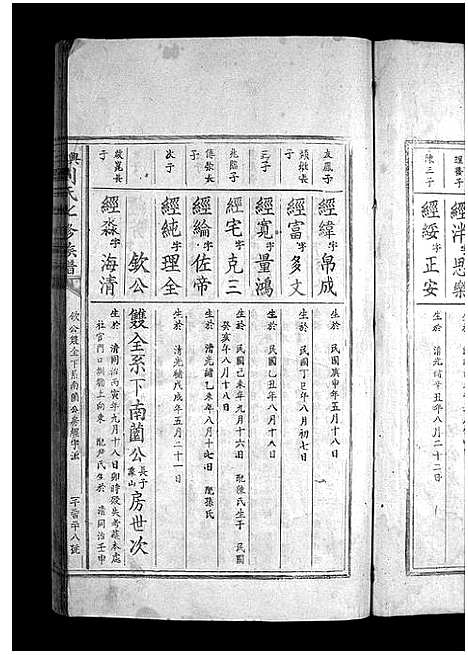 理養子
經泮字思樂
陳三子
經綏字正安
生於 清光緒辛丑年八月二十二日
友鳳子
經緯字帛成
生於 民國庚申年五月十八日
經富字多文
生於 民國丁巳年八月初七日
三子
經寬字量鴻
生於 民國乙丑年八月十八日
兆臨子
經宅字克三
生於 民國己未年九月十六日 配陳氏生于 民國癸亥年八月十八日
傳榮長子
經綸字佐帝
生於 清光緒乙未年八月十七日 配張氏
次子
經純字理全
生於 清光緒戊戌年五月二十一日
欽公雙全系下南薗公長子象山房世次
啟崑長子
經淼字海清
生於 清同治丙寅年九月十八日卯時歿失考葬本處社官門口 上向東 配尹氏生於 清同治壬申
興 氏 修族譜
欽公雙全下系南薗公房經字派